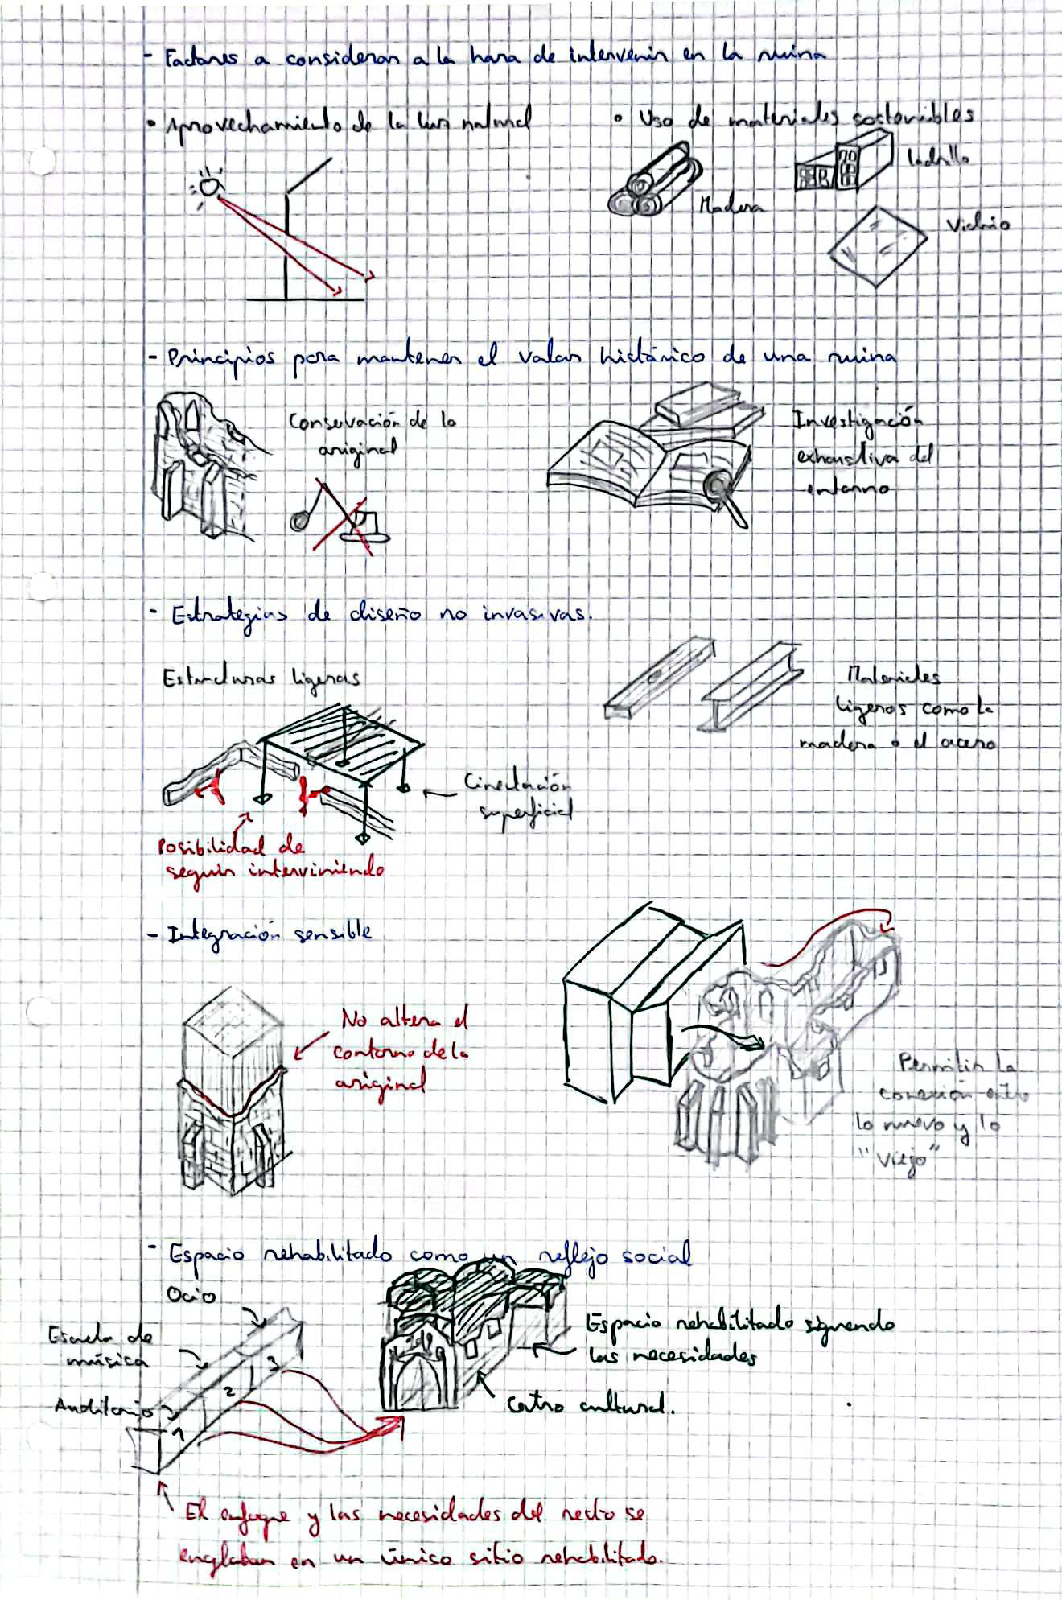 - Factores a considerar a la hora de intervenir en la ruina
• Aprovechamiento de la luz natural
• Uso de materiales sostenibles
Madera
ladrillo
Vidrio
- Principios para mantener el valor histórico de una ruina
Conservación de lo
original
Investigación
exhaustiva del
entorno
- Estrategias de diseño no invasivas.
Estructuras ligeras
Materiales
ligeros como la
madera o el acero
Circulación
superficial
Posibilidad de
seguir interviniendo
- Integración sensible
No altera el
contorno de lo
original
Permitir la
conexión entre
lo nuevo y lo
"viejo"
- Espacio rehabilitado como un reflejo social
Ocio
Escuela de
música
Auditorio
1
2
3
Espacio rehabilitado siguiendo
las necesidades
Centro cultural.
El enfoque y las necesidades del resto se
engloban en un único sitio rehabilitado.